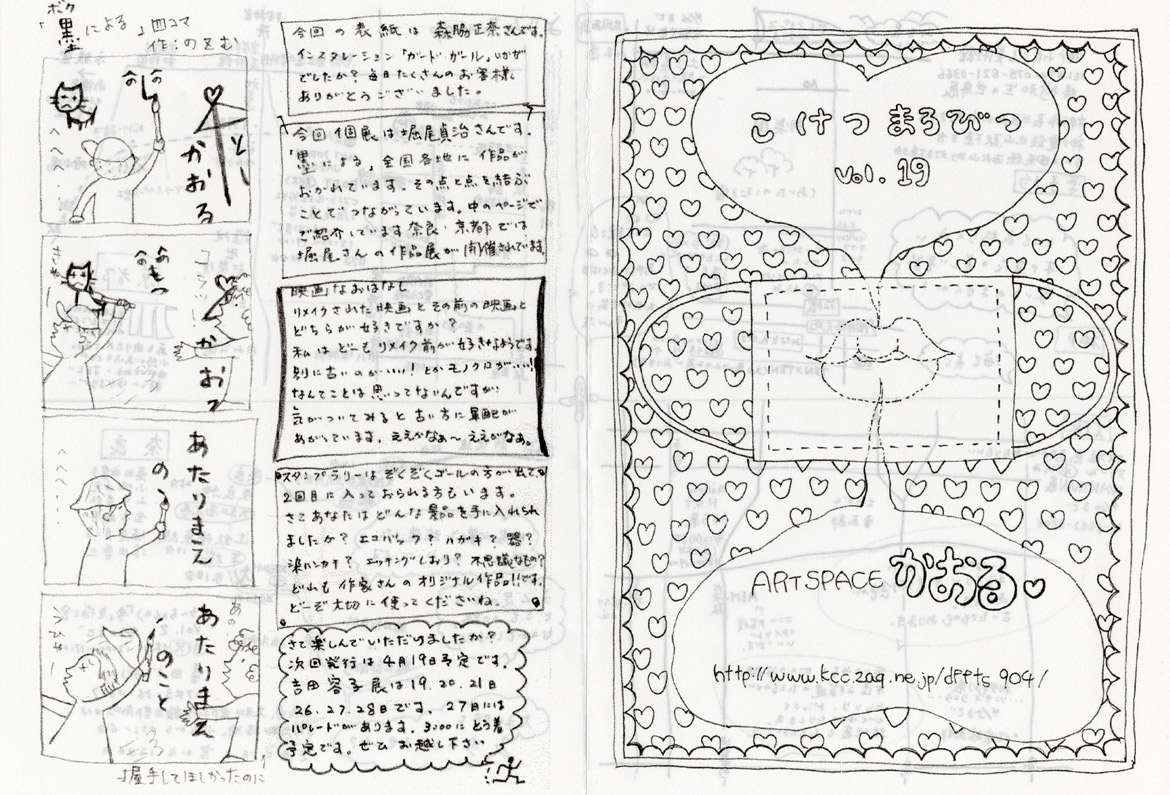 こけつまろびつ
vol. 19
ART SPACE かおる
http://www.kcc.zaq.ne.jp/dfpts904/
ボク
「墨による」四コマ
作:のえむ
かおる
かおっ
あたりまえ
のこ
あたりまえ
のこと
握手してほしかったのに
今回の表紙は 森脇正奈さんです。
インスタレーション「ガード・ガール」いかが
でしたか?毎日たくさんのお客様、
ありがとうございました。
今回個展は堀尾貞治さんです。
「墨による」全国各地に作品が
おかれています。その点と点を結ぶ
ことでつながっています。中のページで
ご紹介しています奈良・京都では
堀尾さんの作品展が開催されています。
映画なおはなし
リメイクされた映画とその前の映画と
どちらが好きですか?
私はどーもリメイク前が好きなようです。
別に古いのがいい!とかモノクロがいい!!
なんてことは思ってないんですが、
気がついてみると古い方に軍配が
あがっています。ええがなぁ〜ええがなぁ。
スタンプラリーはぞくぞくゴールの方が出て、
2回目に入っておられる方もいます。
さてあなたはどんな景品を手に入れられ
ましたか?エコバック?ハガキ?器?
染ハンカチ?エッチングしおり?不思議なもの?
どれも作家さんのオリジナル作品!!です。
どーぞ大切に使ってくださいね。
さて楽しんでいただけましたか?
次回発行は4月19日予定です。
吉田容子展は19.20.21日
26.27.28日です。27日には
パレードがあります。3:00にとう着
予定です。ぜひお越し下さい